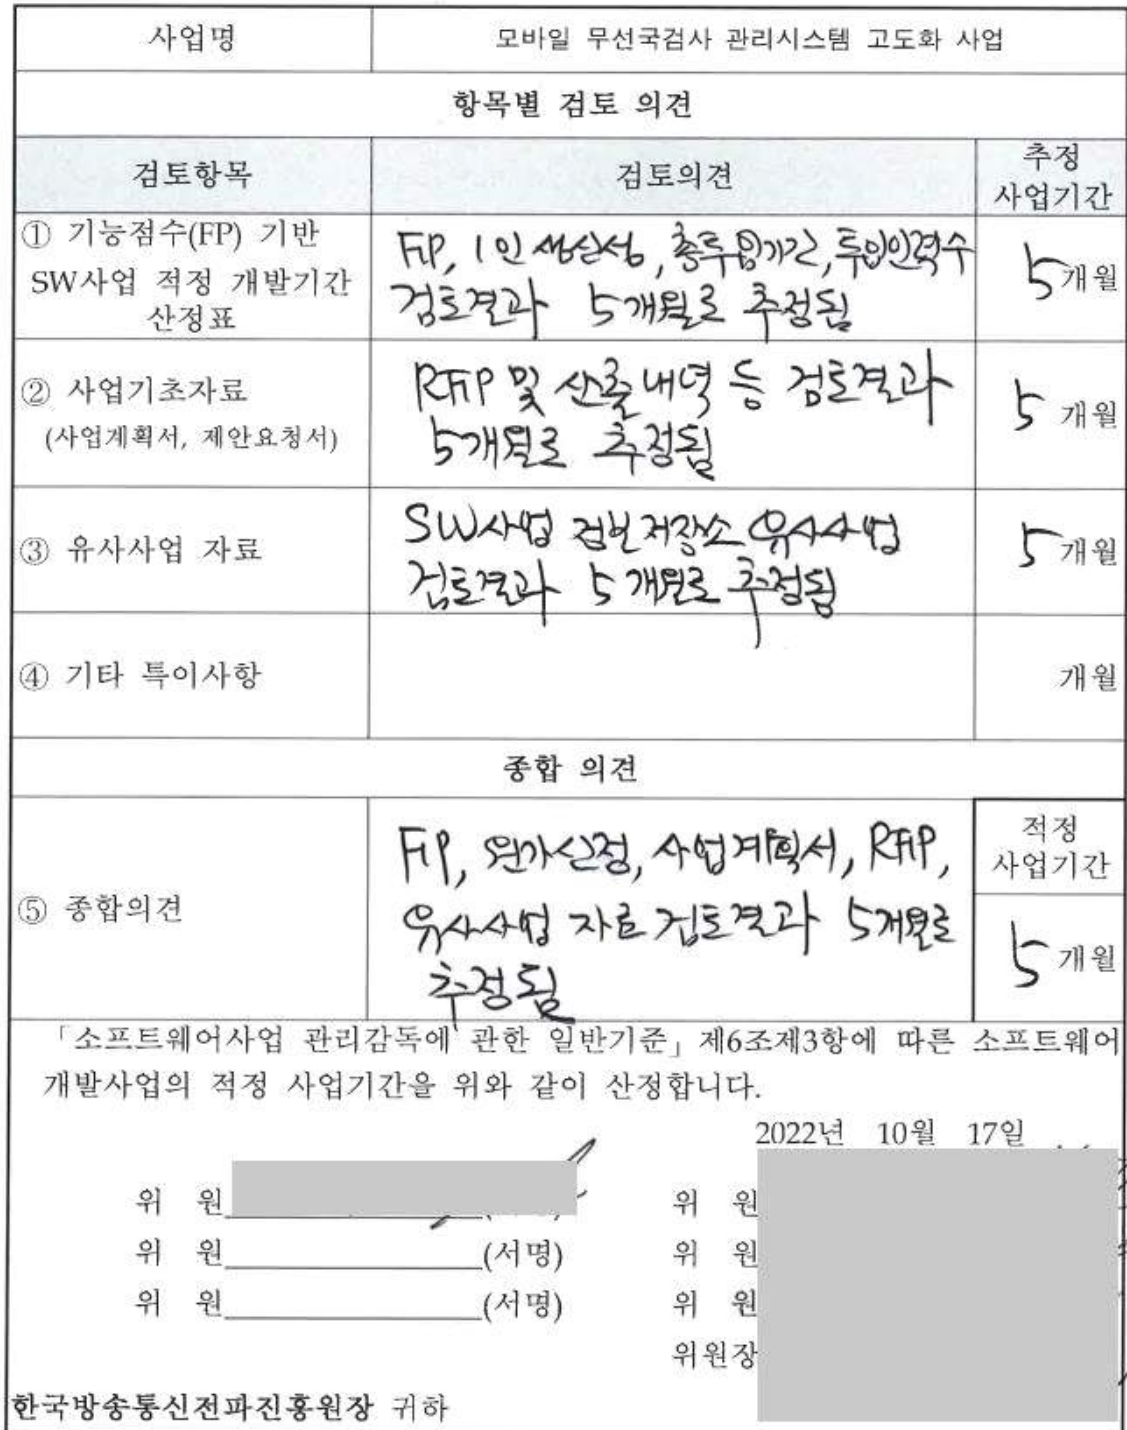 사업명 모바일 무선국검사 관리시스템 고도화 사업
항목별 검토 의견
검토항목 검토의견 추정 사업기간
① 기능점수(FP) 기반
SW사업 적정 개발기간
산정표
FP, 1인 생산성, 총투입기간, 투입인력수
검토결과 5개월로 추정됨
5개월
② 사업기초자료
(사업계획서, 제안요청서)
RFP 및 산출내역 등 검토결과
5개월로 추정됨
5 개월
③ 유사사업 자료
SW사업 정보저장소 유사사업
검토결과 5개월로 추정됨
5개월
④ 기타 특이사항
개월
종합 의견
⑤ 종합의견
FP, 원가산정, 사업계획서, RFP,
유사사업 자료 검토결과 5개월로
추정됨
적정
사업기간
5개월
「소프트웨어사업 관리감독에 관한 일반기준」 제6조제3항에 따른 소프트웨어
개발사업의 적정 사업기간을 위와 같이 산정합니다.
2022년 10월 17일
위 원 위 원
위 원 (서명) 위 원
위 원 (서명) 위 원
위원장
한국방송통신전파진흥원장 귀하